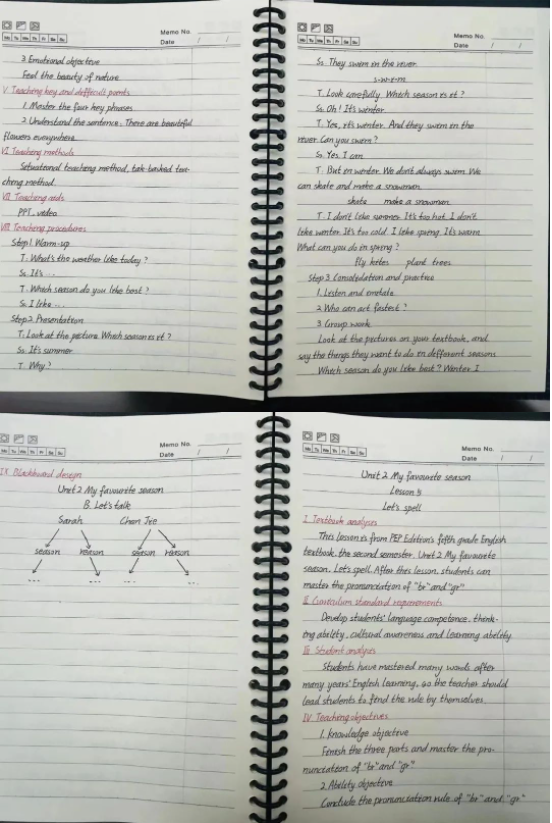 Memo No.
Mo Tu We Th Fr Sa Su
Date / /
3. Emotional objective
Feel the beauty of nature.
V. Teaching key and difficult points
1. Master the four key phrases
2. Understand the sentence: There are beautiful
flowers everywhere.
VI. Teaching methods
Situational teaching method, task-based tea-
ching method.
VII. Teaching aids
PPT, video
VIII. Teaching procedures
Step 1. Warm-up
T: What's the weather like today?
Ss: It's ...
T: Which season do you like best?
Ss: I like ...
Step 2. Presentation
T: Look at the picture. Which season is it?
Ss: It's summer
T: Why?
Memo No.
Mo Tu We Th Fr Sa Su
Date / /
Ss: They swim in the river.
s-w-i-m
T: Look carefully. Which season is it?
Ss: Oh! It's winter
T: Yes, it's winter. And they swim in the
river. Can you swim?
S: Yes, I can.
T: But in winter. We don't always swim. We
can skate and make a snowman.
skate make a snowman
T: I don't like summer. It's too hot. I don't
like winter. It's too cold. I like spring. It's warm.
What can you do in spring?
fly kites plant trees
Step 3. Consolidation and practice
1. Listen and imitate
2. Who can act fastest?
3. Group work
Look at the pictures on your textbook, and
say the things they want to do in different seasons.
Which season do you like best? Winter. I
Memo No.
Mo Tu We Th Fr Sa Su
Date / /
IX. Blackboard design
Unit 2 My favourite season
B. Let's talk
Sarah Chen Jie
season reason season reason
... ... ... ...
Memo No.
Mo Tu We Th Fr Sa Su
Date / /
Unit 2. My favourite season
Lesson 5
Let's spell
I. Textbook analysis
This lesson is from PEP Edition's fifth grade English
textbook, the second semester. Unit 2 My favourite
season. Let's spell. After this lesson, students can
master the pronunciation of "br" and "gr"
II. Curriculum standard requirements
Develop students' language competence, think-
ing ability, cultural awareness and learning ability.
III. Student analysis
Students have mastered many words after
many years' English learning, so the teacher should
lead students to find the rule by themselves.
IV. Teaching objectives
1. Knowledge objective
Finish the three parts and master the pro-
nunciation of "br" and "gr"
2. Ability objective
Conclude the pronunciation rule of "br" and "gr"